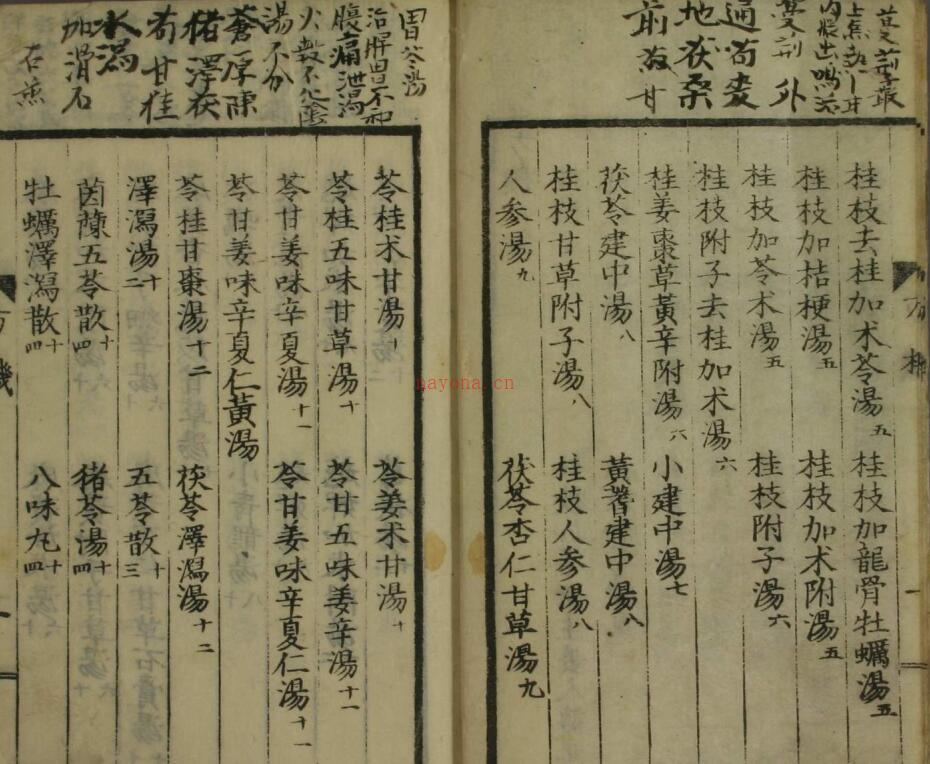 蔓荊子散
上焦熱
内脹出鳴
蔓荊 外
通 麦
地茯桑
前 甘
桂枝去桂加朮苓湯五 桂枝加龍骨牡蠣湯五
桂枝加桔梗湯五 桂枝加朮附湯五
桂枝加苓朮湯五 桂枝附子湯六
桂枝附子去桂加朮湯六
桂姜棗草黃辛附湯六 小建中湯七
茯苓建中湯八 黃耆建中湯八
桂枝甘草附子湯八 桂枝人參湯八
人參湯九 茯苓杏仁甘草湯九
方機
胃苓湯
治脾胃不和
腹痛泄瀉
湯不分
蒼厚陳
猪澤茯
甘桂
水瀉
加滑石
苓桂朮甘湯十 苓姜朮甘湯十
苓桂五味甘草湯十 苓甘五味姜辛湯十一
苓甘姜味辛夏湯十一 苓甘姜味辛夏仁湯十一
苓甘姜味辛夏仁黃湯
苓桂甘棗湯十二 茯苓澤瀉湯十二
澤瀉湯十二 五苓散十三
茵蔯五苓散十四 猪苓湯十四
牡蠣澤瀉散十四 八味丸十四
方機
nayona.cn